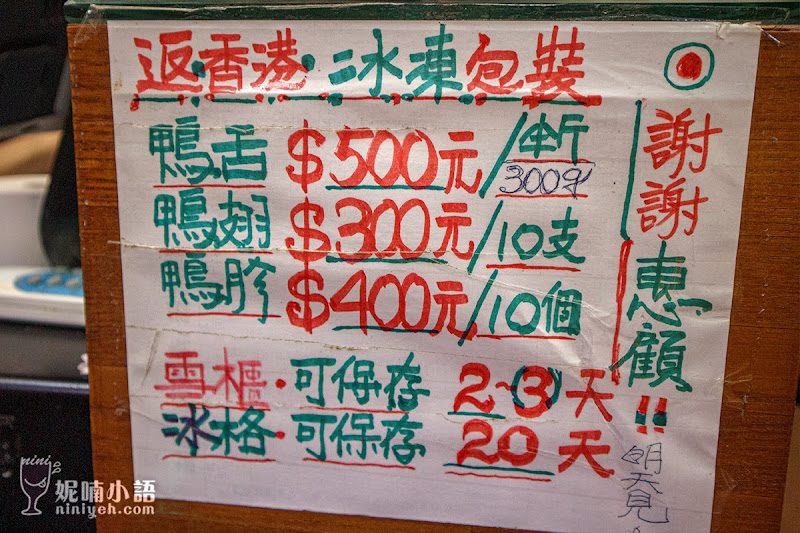 返·香港·冰凍包裝
鴨舌 $500元/斤
300g
鴨翅 $300元/10支
鴨胗 $400元/10個
雪櫃·可保存 2~3天
冰格·可保存 20天
謝謝惠顧!!
明天見。
nini
妮喃小語
niniyeh.com